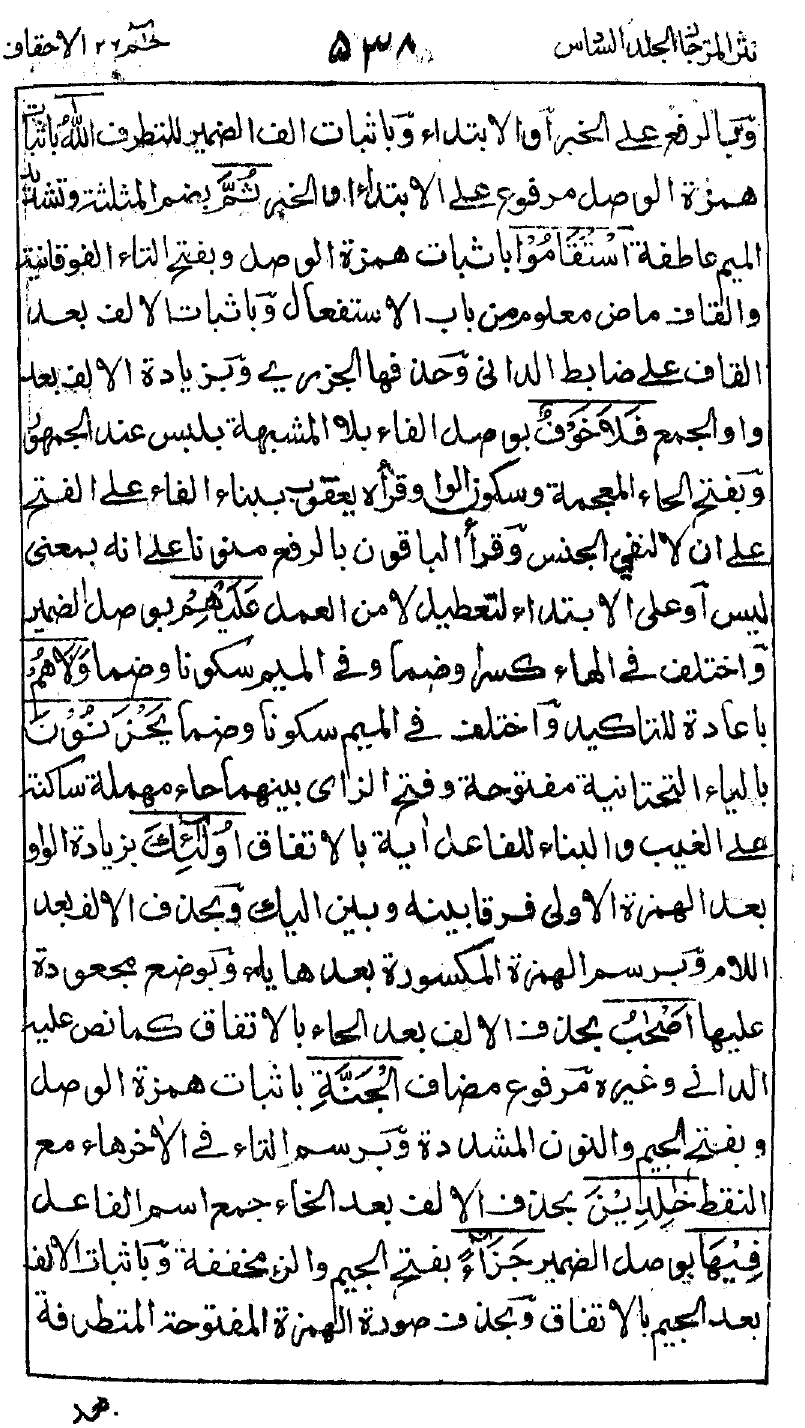 نثر المرجان المجلد السادس ٥٣٨ حٰم ٢٦ الاحقاف
وّبالرفع على الخبر أو الابتداء وّباثبات الف الضمير للتطرف اللهُ باثبات
همزة الوصل مرفوع على الابتداء او الخبر ثُمَّ بضم المثلثة وتشديد
الميم عاطفة اسْتَقَامُوْا باثبات همزة الوصل وبفتح التاء الفوقانية
والقاف ماض معلوم من باب الاستفعال وّباثبات الالف بعد
القاف على ضابط الدانى وّحذفها الجزري وّبزيادة الالف بعد
واو الجمع فَلَا خَوْفٌ بوصل الفاء بلا المشبهة بليس عند الجمهور
وّبفتح الخاء المعجمة وسكون الواو وقرأه يعقوب ببناء الفاء على الفتح
على ان لا لنفي الجنس وّقرأ الباقون بالرفع منونا على انه بمعنى
ليس أو على الابتداء لتعطيل لا من العمل عَلَيْهِمْ بوصل الضمير
وّاختلف في الهاء كسرا وضما وفي الميم سكونا وضما وَلَا هُمْ
باعادة لا للتاكيد وّاختلف في الميم سكونا وضما يَحْزَنُوْنَ
بالياء التحتانية مفتوحة وفتح الزاى بينهما حاء مهملة ساكنة
على الغيب والبناء للفاعل أية بالاتفاق اُولٰۤئِكَ بزيادة الواو
بعد الهمزة الاولى فرقا بينه وبين اليك وّبحذف الالف بعد
اللام وّبرسم الهمزة المكسورة بعدها ياء وّبوضع مجعودة
عليها اَصْحٰبُ بحذف الالف بعد الحاء بالاتفاق كما نص عليه
الدانى وغيره مّرفوع مضاف الْجَنَّةِ باثبات همزة الوصل
وبفتح الجيم والنون المشددة وّبرسم التاء في الأخر هاء مع
النقط خٰلِدِيْنَ بحذف الالف بعد الخاء جمع اسم الفاعل
فِيْهَا بوصل الضمير جَزَاۤءً بفتح الجيم والزاى مخففة وّباثبات الالف
بعد الجيم بالاتفاق وّبحذف صورة الهمزة المفتوحة المتطرفة